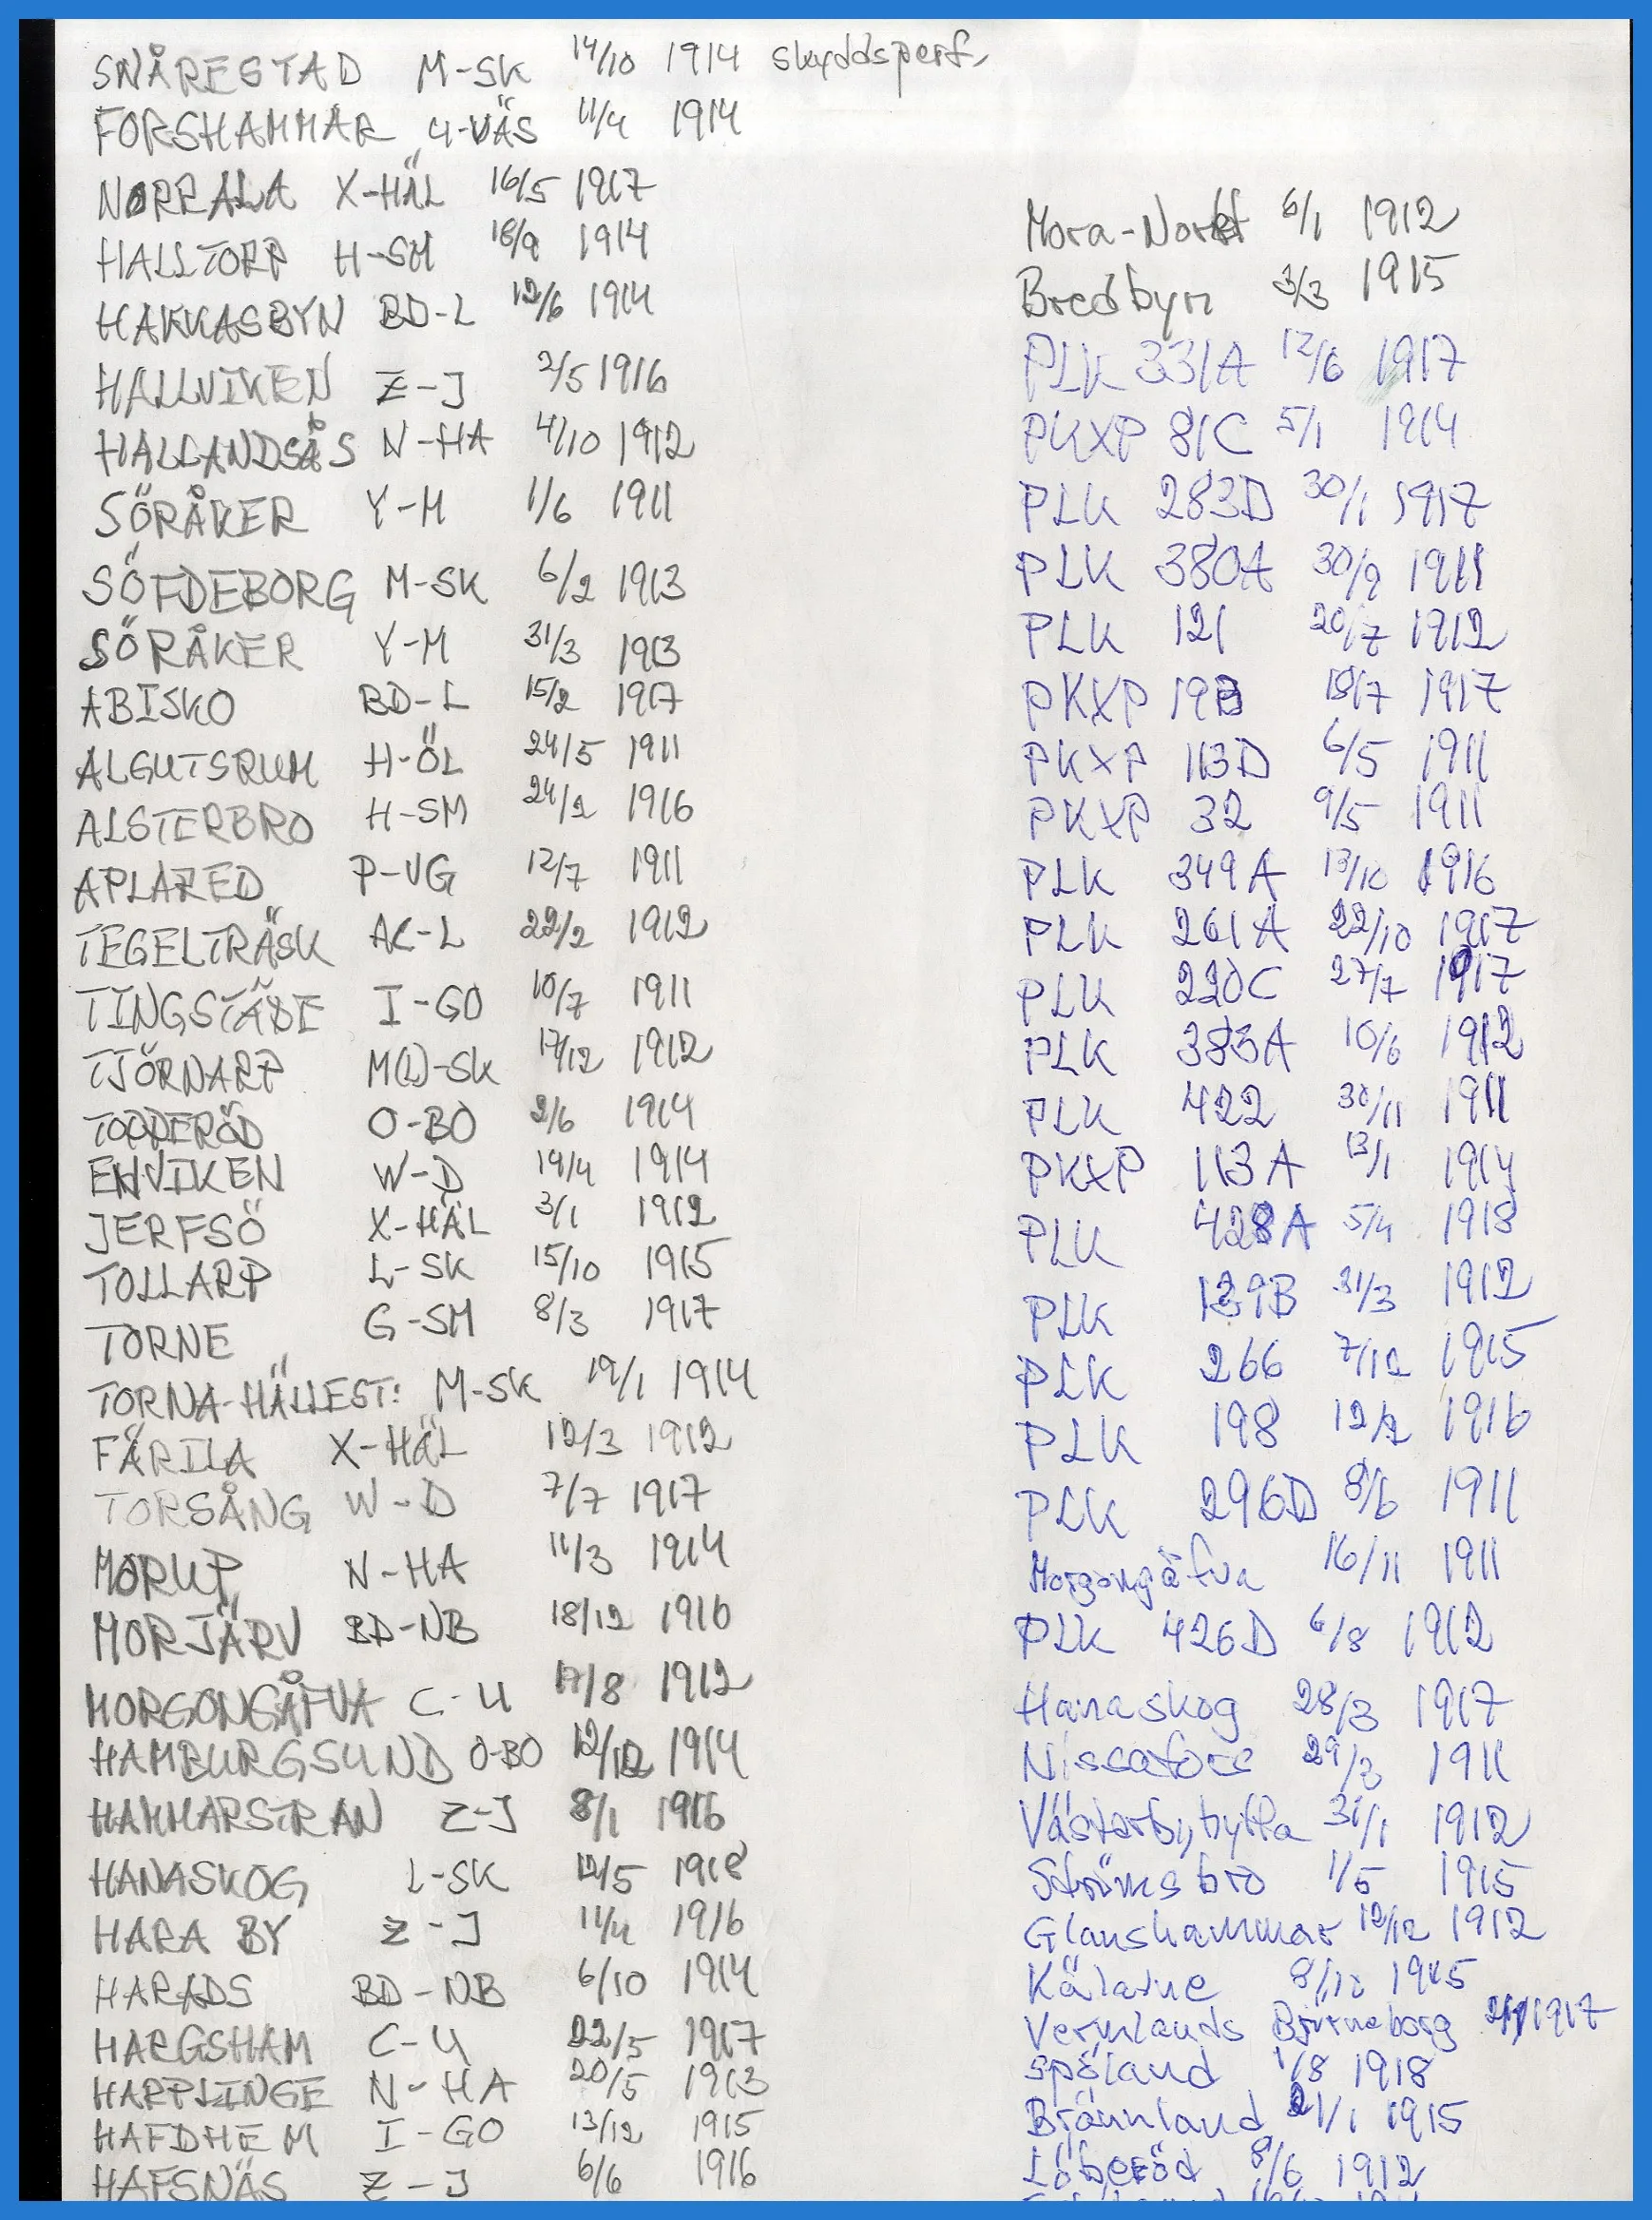 SNÅRESTAD M-SK 14/10 1914 skyddsperf.
FORSHAMMAR U-VÄS 11/4 1914
NORRALA X-HÄL 16/5 1917
HALLTORP H-SM 18/9 1914
HAKKASBYN BD-L 12/6 1914
HALLVIKEN Z-J 2/5 1916
HALLANDSÅS N-HA 4/10 1912
SÖRÅKER Y-M 1/6 1911
SÖFDEBORG M-SK 6/2 1913
SÖRÅKER Y-M 31/3 1913
ABISKO BD-L 15/2 1917
ALGUTSRUM H-ÖL 24/5 1911
ALSTERBRO H-SM 24/2 1916
APLARED P-VG 12/7 1911
TEGELTRÄSK AC-L 22/2 1912
TINGSTÄDE I-GO 10/7 1911
TJÖRNARP M(L)-SK 17/12 1912
TODDERÖD O-BO 2/6 1914
ENVIKEN W-D 14/4 1914
JERFSÖ X-HÄL 3/1 1912
TOLLARP L-SK 15/10 1915
TORNE G-SM 8/3 1917
TORNA-HÄLLEST: M-SK 19/1 1914
FÄRILA X-HÄL 12/3 1912
TORSÅNG W-D 7/7 1917
MORUP N-HA 11/3 1914
MORJÄRV BD-NB 18/12 1916
MORGONGÅFVA C-U 17/8 1912
HAMBURGSUND O-BO 12/12 1914
HAMMARSTRAN Z-J 8/1 1916
HANASKOG L-SK 12/5 1918
HARA BY Z-J 11/4 1916
HARADS BD-NB 6/10 1914
HARGSHAM C-U 22/5 1917
HARPLINGE N-HA 20/5 1913
HAFDHEM I-GO 13/12 1915
HAFSNÄS Z-J 6/6 1916
Mora-Noret 6/1 1912
Bredbyn 3/3 1915
PLK 331A 12/6 1917
PKXP 81C 5/1 1914
PLK 283D 30/1 1917
PLK 380A 30/9 1911
PLK 121 20/7 1912
PKXP 19B 18/7 1917
PKXP 113D 6/5 1911
PKXP 32 9/5 1911
PLK 349A 13/10 1916
PLK 261A 22/10 1917
PLK 220C 27/7 1917
PLK 383A 10/6 1912
PLK 422 30/11 1911
PKXP 113A 13/1 1914
PLK 428A 5/4 1918
PLK 139B 31/3 1912
PLK 266 7/12 1915
PLK 198 12/2 1916
PLK 296D 8/6 1911
Morgongåfva 16/11 1911
PLK 426D 6/8 1912
Hanaskog 28/3 1917
Nissafors 29/3 1911
Västerbybytta 31/1 1912
Strömsbro 1/5 1915
Glanshammar 12/12 1912
Kälarne 8/10 1915
Vermlands Björneborg 1917
Spöland 1/8 1918
Brännland 21/1 1915
Löberöd 8/6 1912